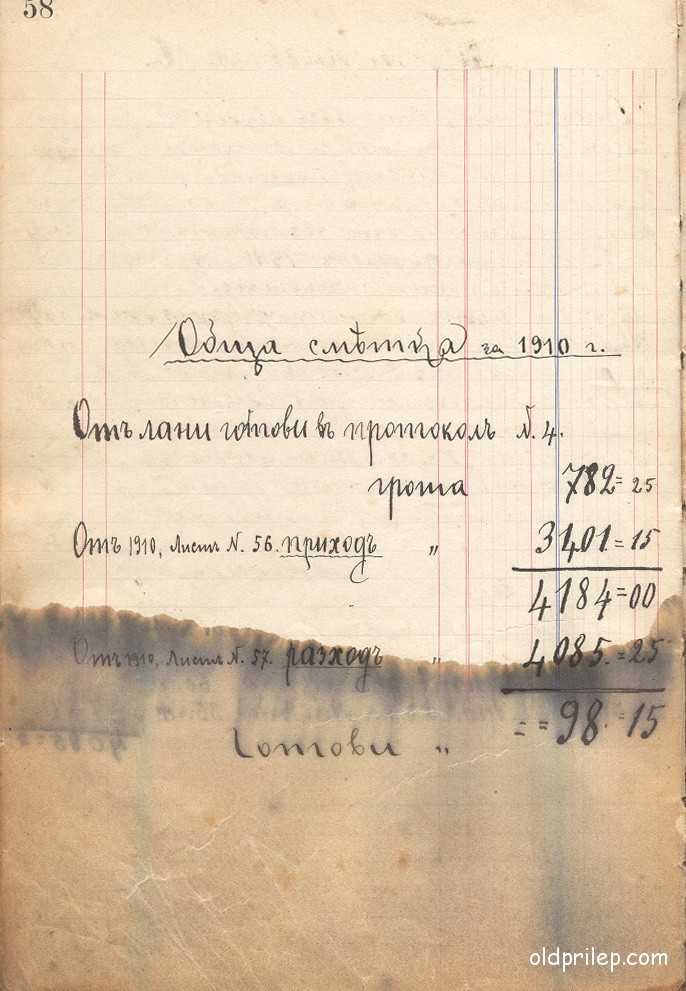 58
Обща смѣтка за 1910 г.
Отъ лани готови въ протоколъ N. 4.
гроша 782=25
Отъ 1910, Листъ N. 56. приходъ „ 3401.=15
4184=00
Отъ 1910, Листъ N. 57. разходъ „ 4085.=25
Готови „ = = 98.=15
oldprilep.com